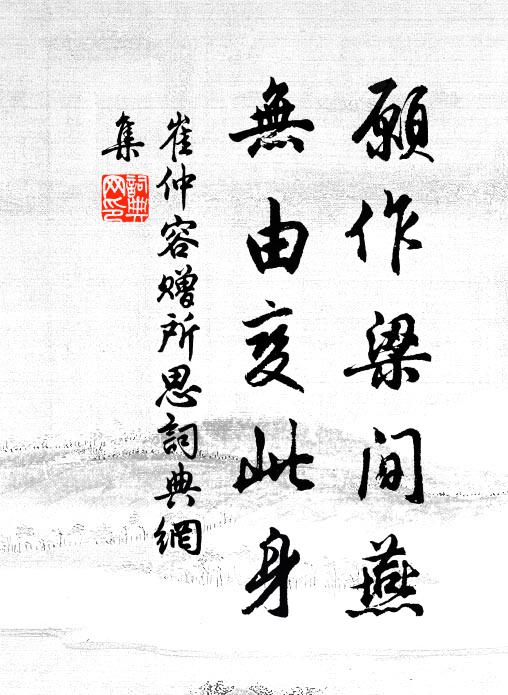 願作梁間燕
無由变此身
崔仲容贈所思詞典網
集
詞典
网印